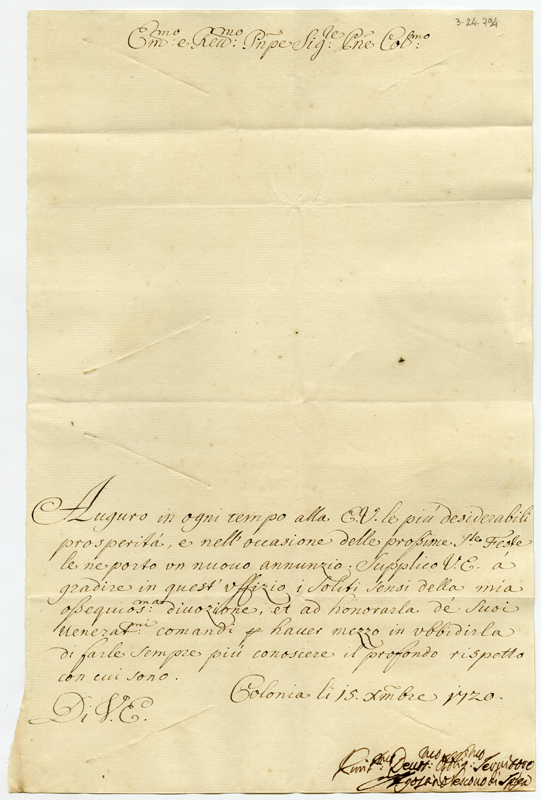 3-24-794
Em:mo e Rev:mo Pnpe Sig:re Pne Col:mo
Auguro in ogni tempo alla E.V. le più desiderabili
prosperitá, e nell'occasione delle prossime S:te Feste
le ne porto un nuouo annunzio; Supplico V.E. a
gradire in quest' vffizio i soliti sensi della mia
ossequios:ma diuozione, et ad honorarla de suoi
venerat:mi comandi p hauer mezzo in vbbidirla
di farle sempre più conoscere il profondo rispetto
con cui sono.
Colonia li 15. Xmbre 1720.
Di V.E.
Deuot:mo Oblig:mo Seruidore